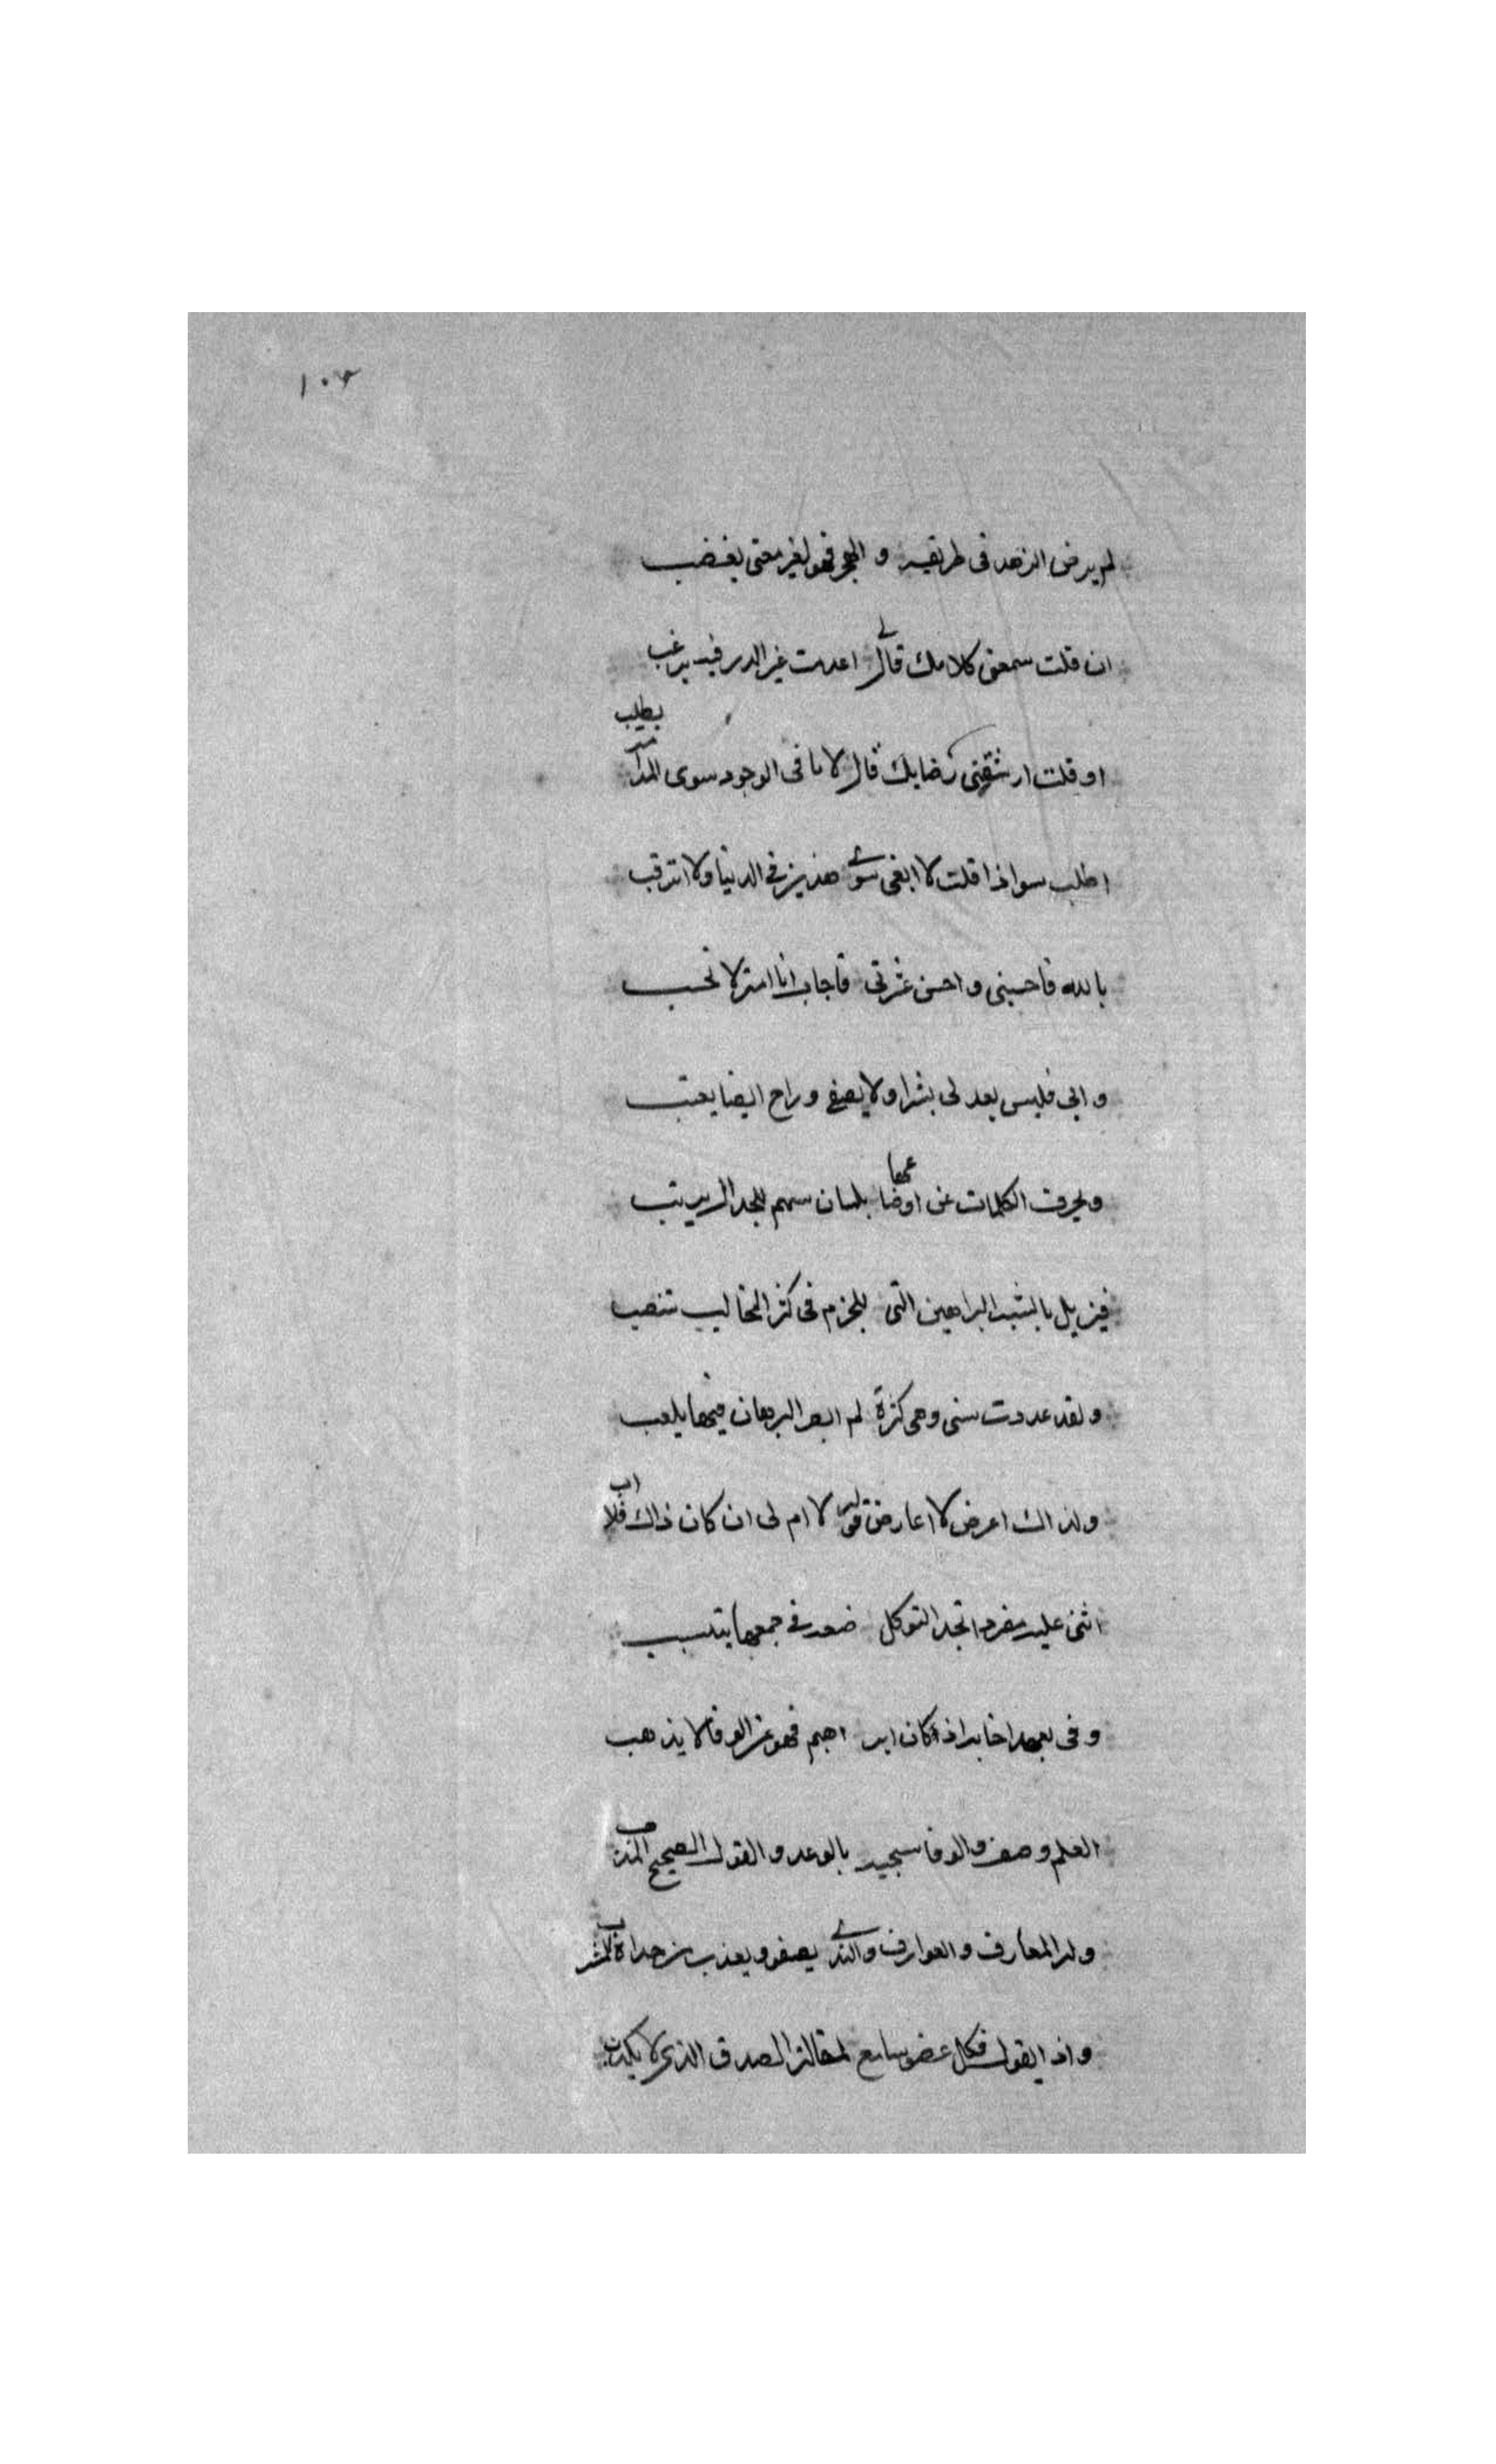 ١٠٢
لم يرض الزهد فى طريقه و الهجر فهو لغير معنى يغضب
ان قلت سمعنى كلامك قال لى اعدمت غير الدر فيه يرغب
او قلت ارشقنى رضابك قال لا ما فى الوجود سوى المدامة يطلب
اطلب سواذا قلت لا ابغى سوى هذين فى الدنيا ولا اترقب
بالله فاحسبنى و احسن عثرتى فاجاب انا امة لا نحسب
و ابى فليس بعد لى بشرا ولا يصغى و راح ايضا يعتب
و يحرف الكلمات عن اوضاعها بلسان سهم للجدال يرتب
فيزيل بالشبه البراهين التى للجزم فى كثر المخاليب تنصب
و لقد عددت سنى وهى كثرة لم ابصر البرهان فيها يلعب
و لذاك اعرض لا اعارض قوله لا ام لى ان كان ذاك فلا اب
اثنى عليه مفردا تجد التوكل ضعه فى جمعها يتسبب
و فى بعهد اخا به اذ كان ابر اهيم فهو عن الوفا لا يذهب
العلم وصف والوفا سجيه بالوعد و القول الصحيح المذهب
و له المعارف و العوارف والندى يصفو و يعذب من جداه المشرب
و اذا يقول فكل عضو سامع لمقاله الصدق الذى لا يكذب